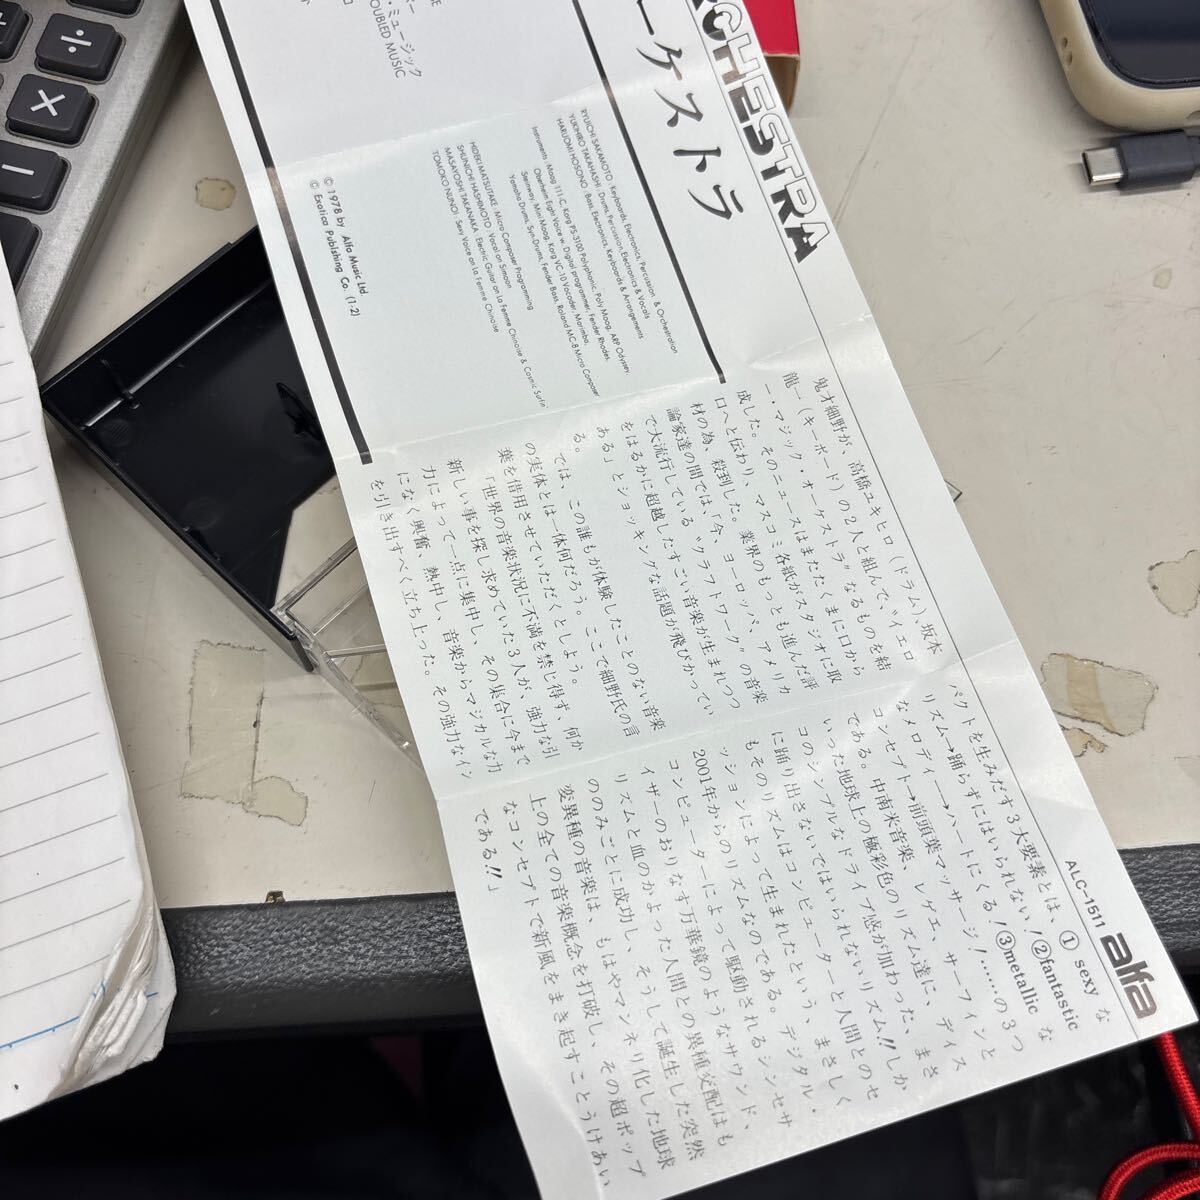 RCHESTRA
ーケストラ
・ミュージック
OUBLED MUSIC
RYUICHI SAKAMOTO : Keyboards, Electronics, Percussion & Orchestration
YUKIHIRO TAKAHASHI : Drums, Percussion, Electronics & Vocals
HARUOMI HOSONO : Bass, Electronics, Keyboards & Arrangements
Instruments : Moog 111-C, Korg PS-3100 Polyphonic, Poly Moog, ARP Odyssey,
Oberheim Eight Voice w. Digital programmer, Fender Rhodes,
Steinway, Mini Moog, Korg VC-10 Vocoder, Marimba,
Yamaha Drums, Syn.Drums, Fender Bass, Roland MC-8 Micro Composer
HIDEKI MATSUTAKE : Micro Composer Programming
SHUNICHI HASHIMOTO : Vocal on Simoon
MASAYOSHI TAKANAKA : Electric Guitar on La Femme Chinoise & Cosmic Surfin'
TOMOKO NUNOI : Sexy Voice on La Femme Chinoise
© 1978 by Alfa Music Ltd
© Exotica Publishing Co. (1-2)
鬼才細野が、高橋ユキヒロ（ドラム）、坂本
龍一（キーボード）の2人と組んで、〝イエロ
ー・マジック・オーケストラ〟なるものを結
成した。そのニュースはまたたくまに口から
口へと伝わり、マスコミ各紙がスタジオに取
材の為、殺到した。業界のもっとも進んだ評
論家達の間では、「今、ヨーロッパ、アメリカ
で大流行している〝クラフトワーク〟の音楽
をはるかに超越したすごい音楽が生まれつつ
ある」とショッキングな話題が飛びかってい
る。
では、この誰もが体験したことのない音楽
の実体とは一体何だろう。ここで細野氏の言
葉を借用させていただくとしよう。
「世界の音楽状況に不満を禁じ得ず、何か
新しい事を探し求めていた3人が、強力な引
力によって一点に集中し、その集合に今まで
になく興奮、熱中し、音楽からマジカルな力
を引き出すべく立ち上った。その強力なイン
パクトを生みだす3大要素とは、①sexyな
リズム→踊らずにはいられない！②fantastic
なメロディー→ハートにくる！③metallicな
コンセプト→前頭葉マッサージ！……の3つ
である。中南米音楽、レゲエ、サーフィンと
いった地球上の極彩色のリズム達に、ディス
コのシンプルなドライブ感が加わった、まさ
に踊り出さないではいられないリズム!!しか
もそのリズムはコンピューターと人間とのセ
ッションによって生まれたという、まさしく
2001年からのリズムなのである。デジタル・
コンピューターによって駆動されるシンセサ
イザーのおりなす万華鏡のようなサウンド、
リズムと血のかよった人間との異種交配はも
ののみごとに成功し、そうして誕生した突然
変異種の音楽は、もはやマンネリ化した地球
上の全ての音楽概念を打破し、その超ポップ
なコンセプトで新風をまき起すことうけあい
である!!」
ALC-1511
alfa
÷
×